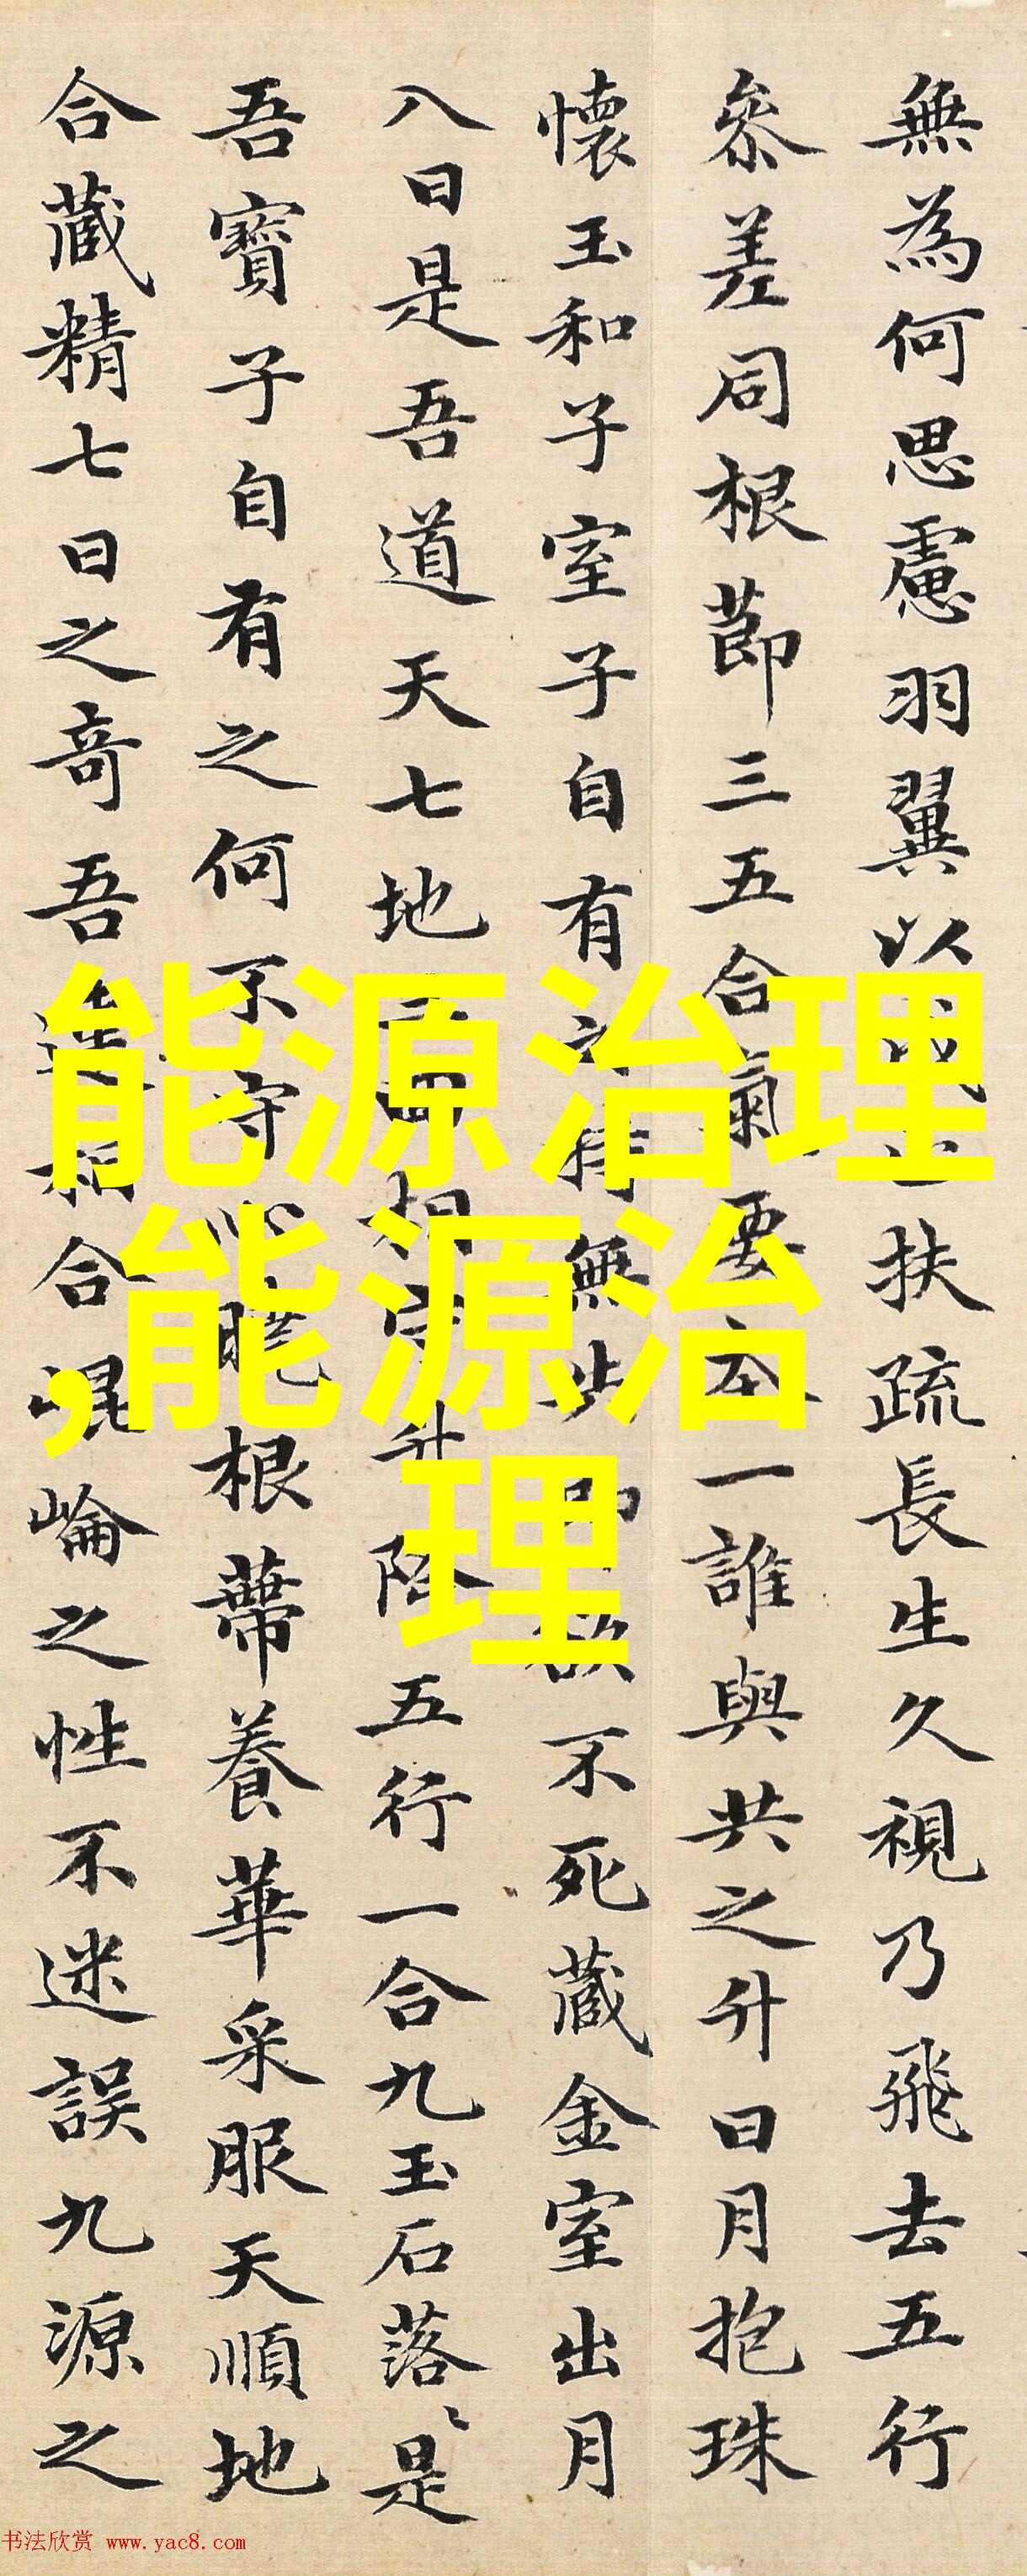 無為何思慮羽翼以扶疏長生久視乃飛去五行
參差同根蔕三五合氣要本一誰與共之升日月抱珠
懷玉和子室子自有之持無失即欲不死藏金室出月
八日是吾道天七地三回相守升降五行一合九玉石落〻是
吾寶子自有之何不守心曉根蔕養華采服天順地
合藏精七日之奇吾連相合崐崘之性不迷誤九源之
能源治理
,能源治
理
书法欣赏 www.yac8.com